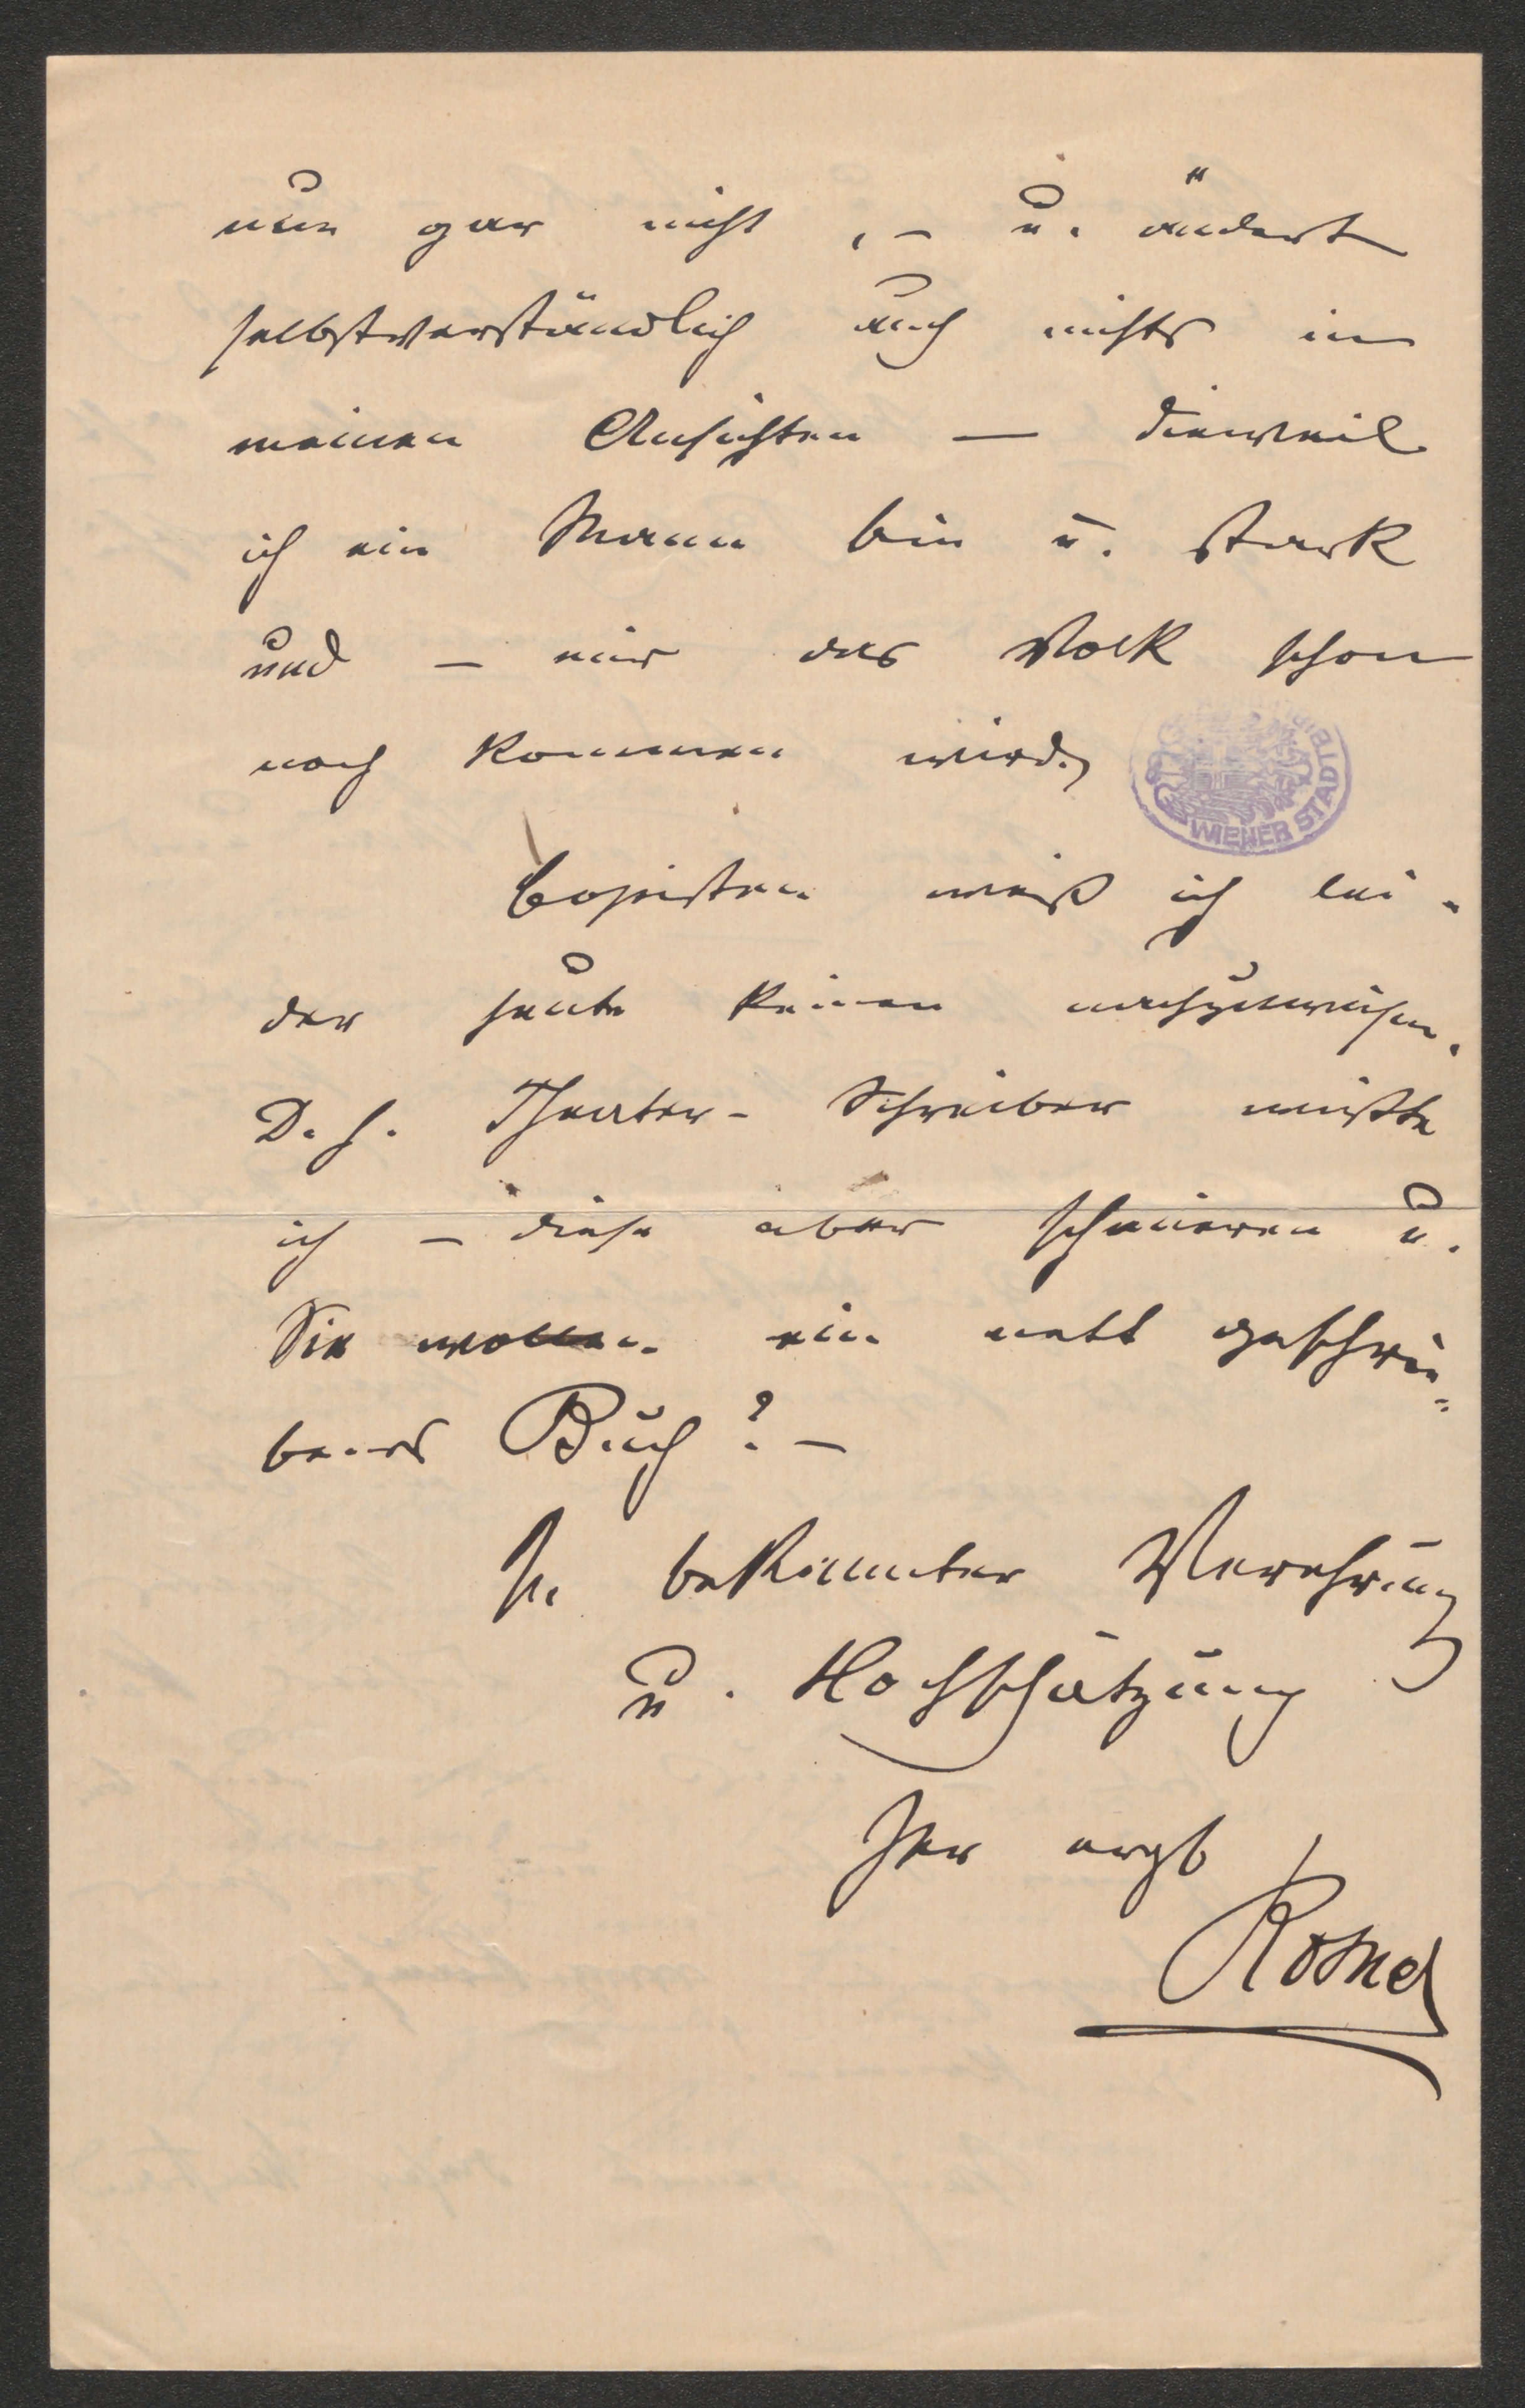 nun gar nicht, – u. ändert
selbstverständlich auch nichts in
meinen Ansichten — dieweil
ich ein Mann bin u. stark
und – mir das Volk schon
nach kommen wird.
Copisten weiß ich lei-
der heute keinen nachzuweisen.
D. h. Theater-Schreiber wüßte
ich – diese aber schmieren u.
Sie wollen ein nett geschrie-
benes Buch? –
In bekannter Verehrung
u. Hochschätzung
Ihr ergb
Rosner
WIENER STADTBI